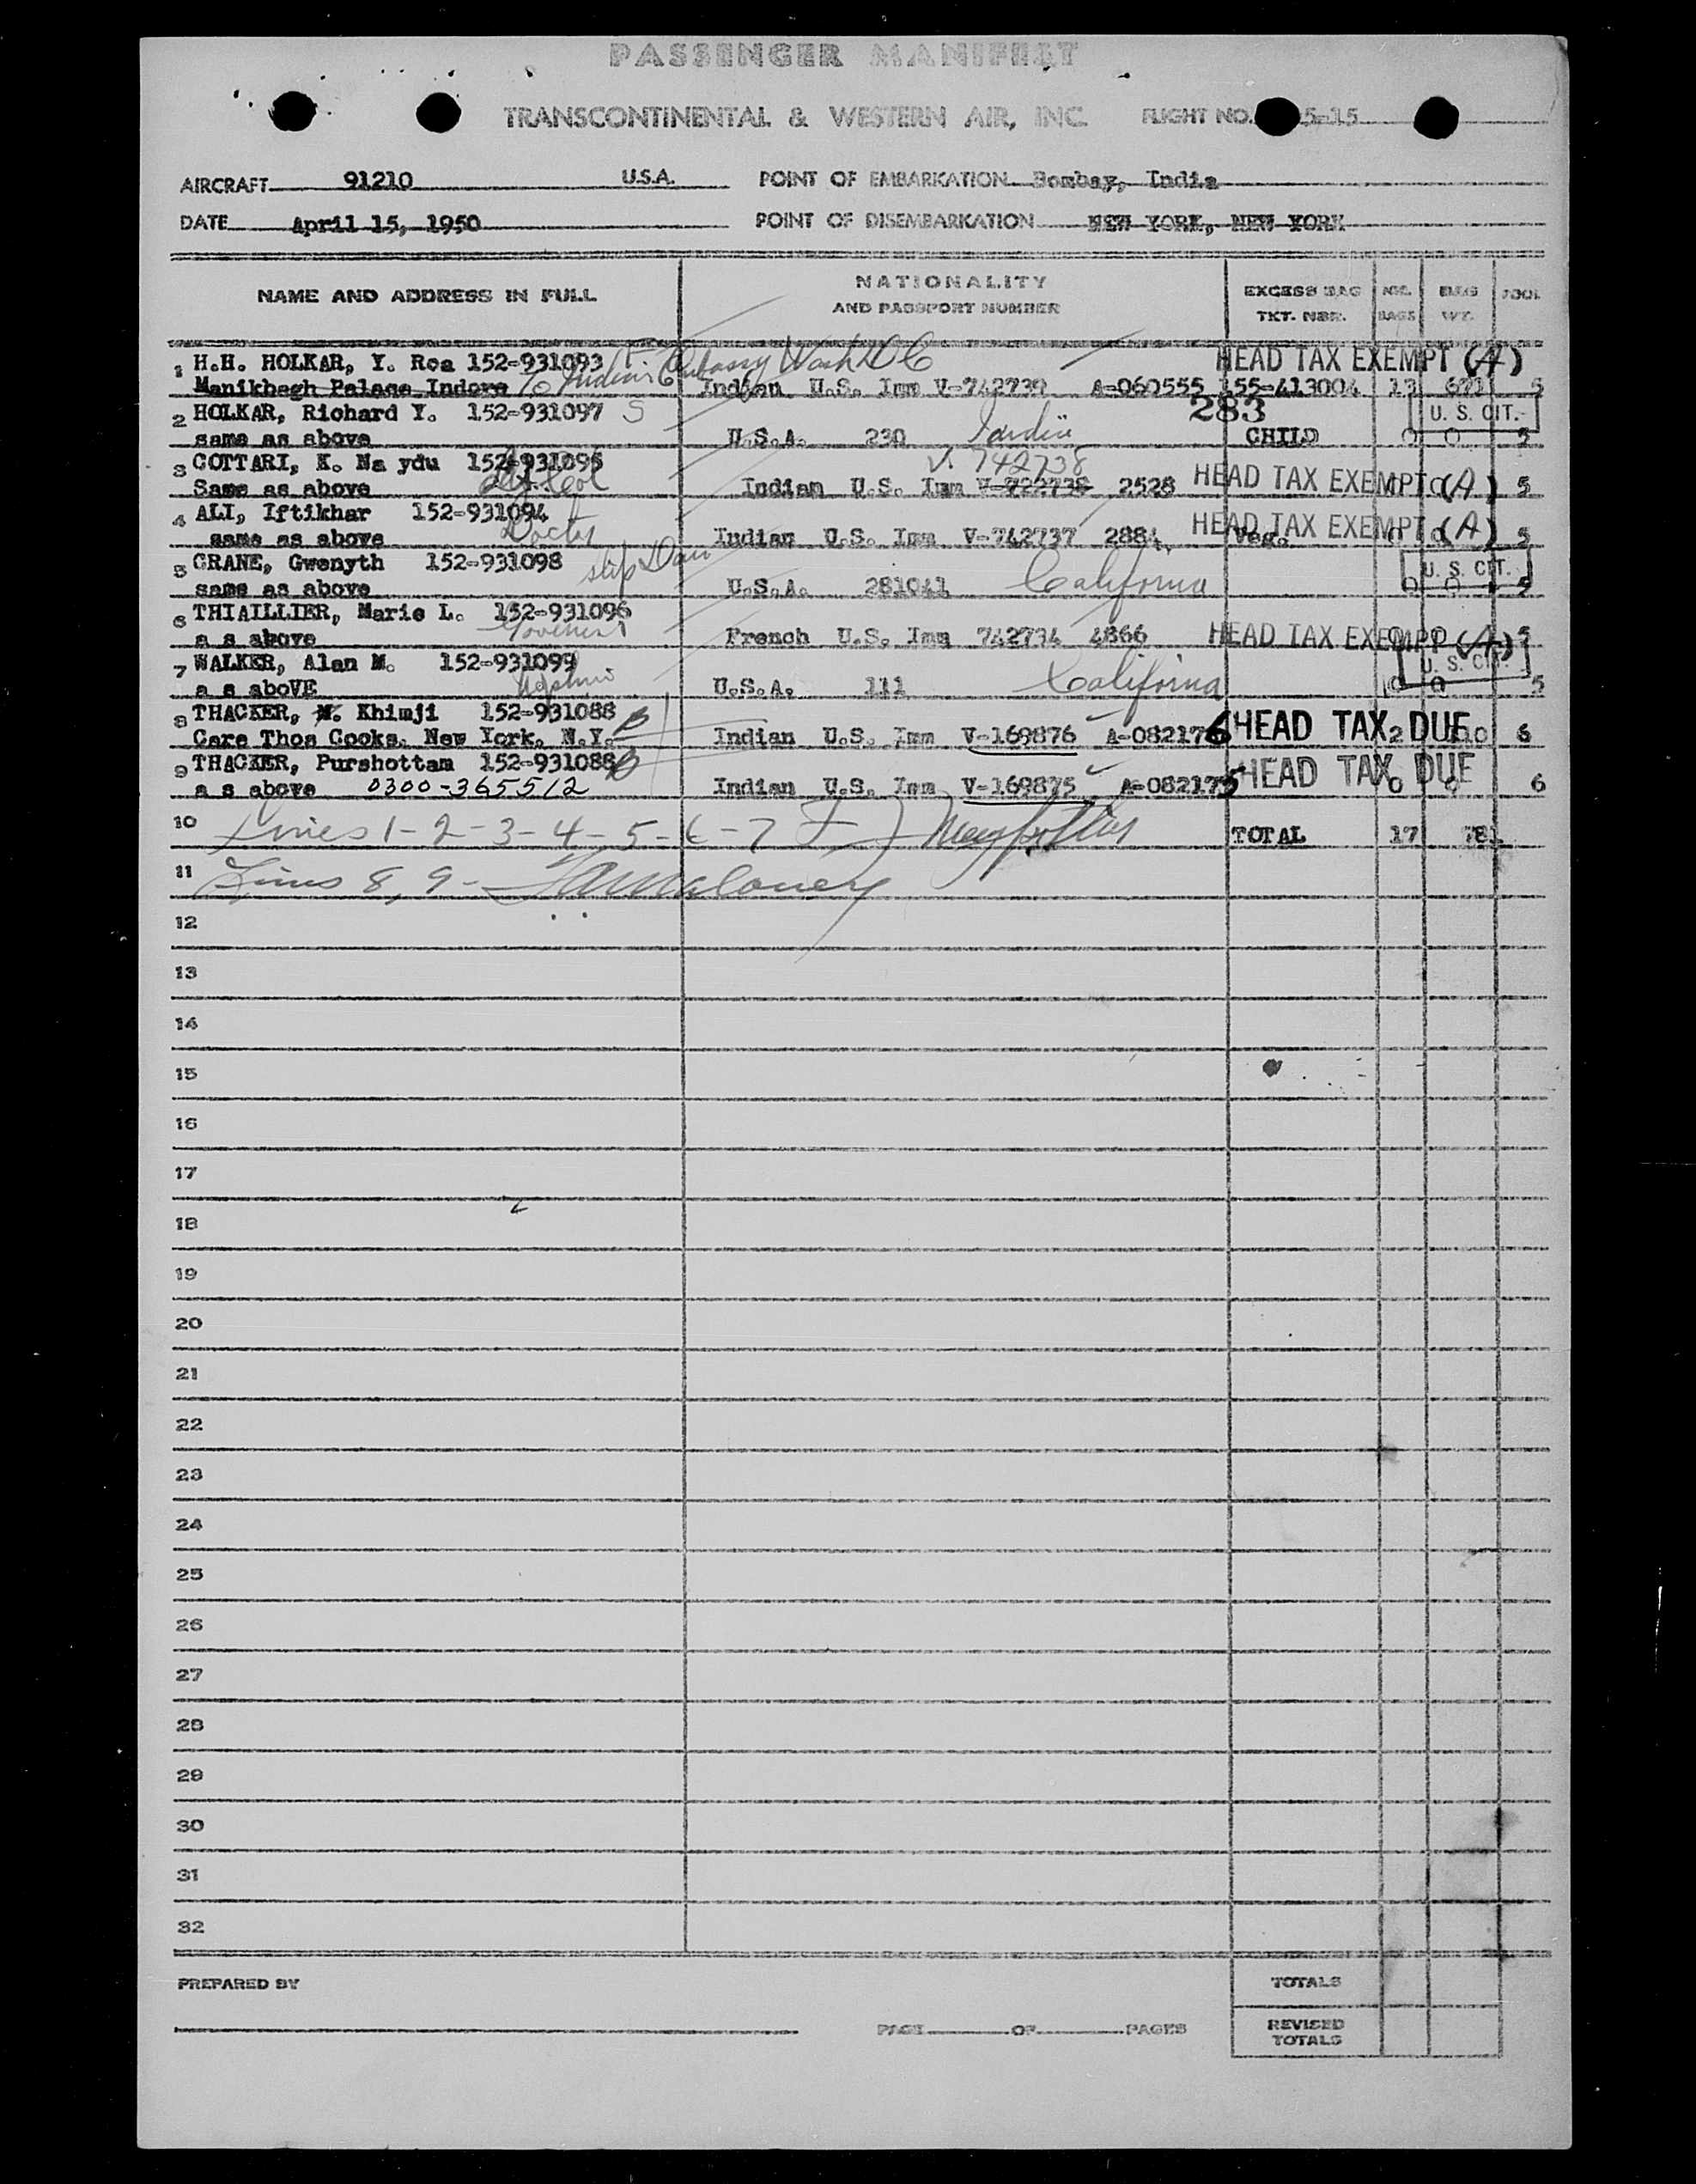 PASSENGER MANIFEST
TRANSCONTINENTAL & WESTERN AIR, INC. FLIGHT NO. 5-15
AIRCRAFT 91210 U.S.A. POINT OF EMBARKATION Bombay, India
DATE April 15, 1950 POINT OF DISEMBARKATION NEW YORK, NEW YORK
NAME AND ADDRESS IN FULL NATIONALITY AND PASSPORT NUMBER EXCESS BAG TKT. NBR. NO. BAGS BAGS WT.
1 H.H. HOLKAR, Y. Roa 152-931093 HEAD TAX EXEMPT (A)
Manikbagh Palace Indore To Indian Embassy Wash DC Indian U.S. Imm V-742739 A-060555 155-413004 13 671 5
2 HOLKAR, Richard Y. 152-931097 S 283 U. S. CIT.
same as above U.S.A. 230 CHILD 0 0 5
3 COTTARI, K. Na ydu 152-931095 V. 742738 HEAD TAX EXEMPT (A)
Same as above Indian U.S. Imm V-722738 2528 5
4 ALI, Iftikhar 152-931094 HEAD TAX EXEMPT (A)
same as above Doctor Indian U.S. Imm V-742737 2884 Veg. 5
5 CRANE, Gwenyth 152-931098 step Dau U. S. CIT.
same as above U.S.A. 281041 California 0 0 5
6 THIAILLIER, Marie L. 152-931096
a s above Governess French U.S. Imm 742734 4866 HEAD TAX EXEMPT (A) 5
7 WALKER, Alan M. 152-931099 U. S. CIT.
a s aboVE U.S.A. 111 California 0 0 5
8 THACKER, M. Khimji 152-931088 B
Care Thos Cooks. New York. N.Y. Indian U.S. Imm V-169876 A-082176 HEAD TAX DUE 2 110 6
9 THACKER, Purshottam 152-931088 B
a s above 0300-365512 Indian U.S. Imm V-169875 A-082175 HEAD TAX DUE 0 0 6
10 Lines 1-2-3-4-5-6-7 TOTAL 17 781
11 Lines 8, 9-
12
13
14
15
16
17
18
19
20
21
22
23
24
25
26
27
28
29
30
31
32
PREPARED BY TOTALS
PAGE OF PAGES REVISED TOTALS